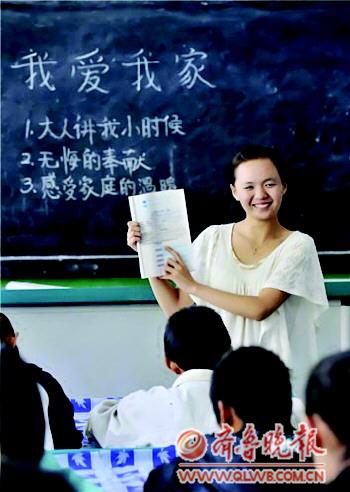 我爱我家
1.大人讲我小时候
2.无悔的奉献
3.感受家庭的温暖
齐鲁晚报
WWW.QLWB.COM.CN